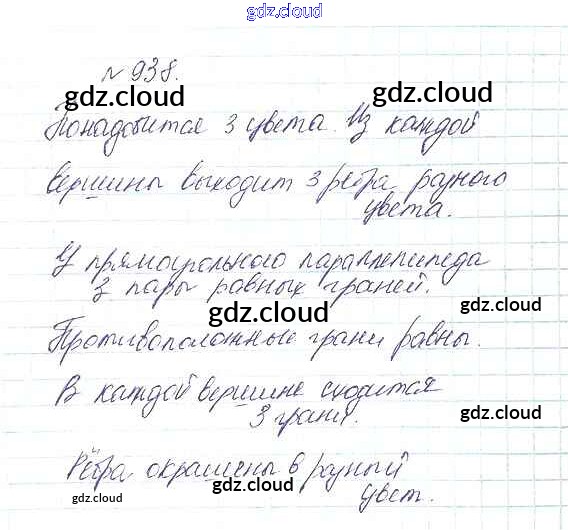 gdz.cloud
№938.
gdz.cloud gdz.cloud
Понадобится 3 цвета. Из каждой
вершины выходит 3 ребра разного
gdz.cloud
цвета.
У прямоугольного параллепипеда
3 пары равных граней.
gdz.cloud gdz.cloud
Противоположные грани равны.
В каждой вершине сходится
gdz.cloud gdz.cloud
3 грани.
Рёбра окрашены в разный
gdz.cloud gdz.cloud
цвет.